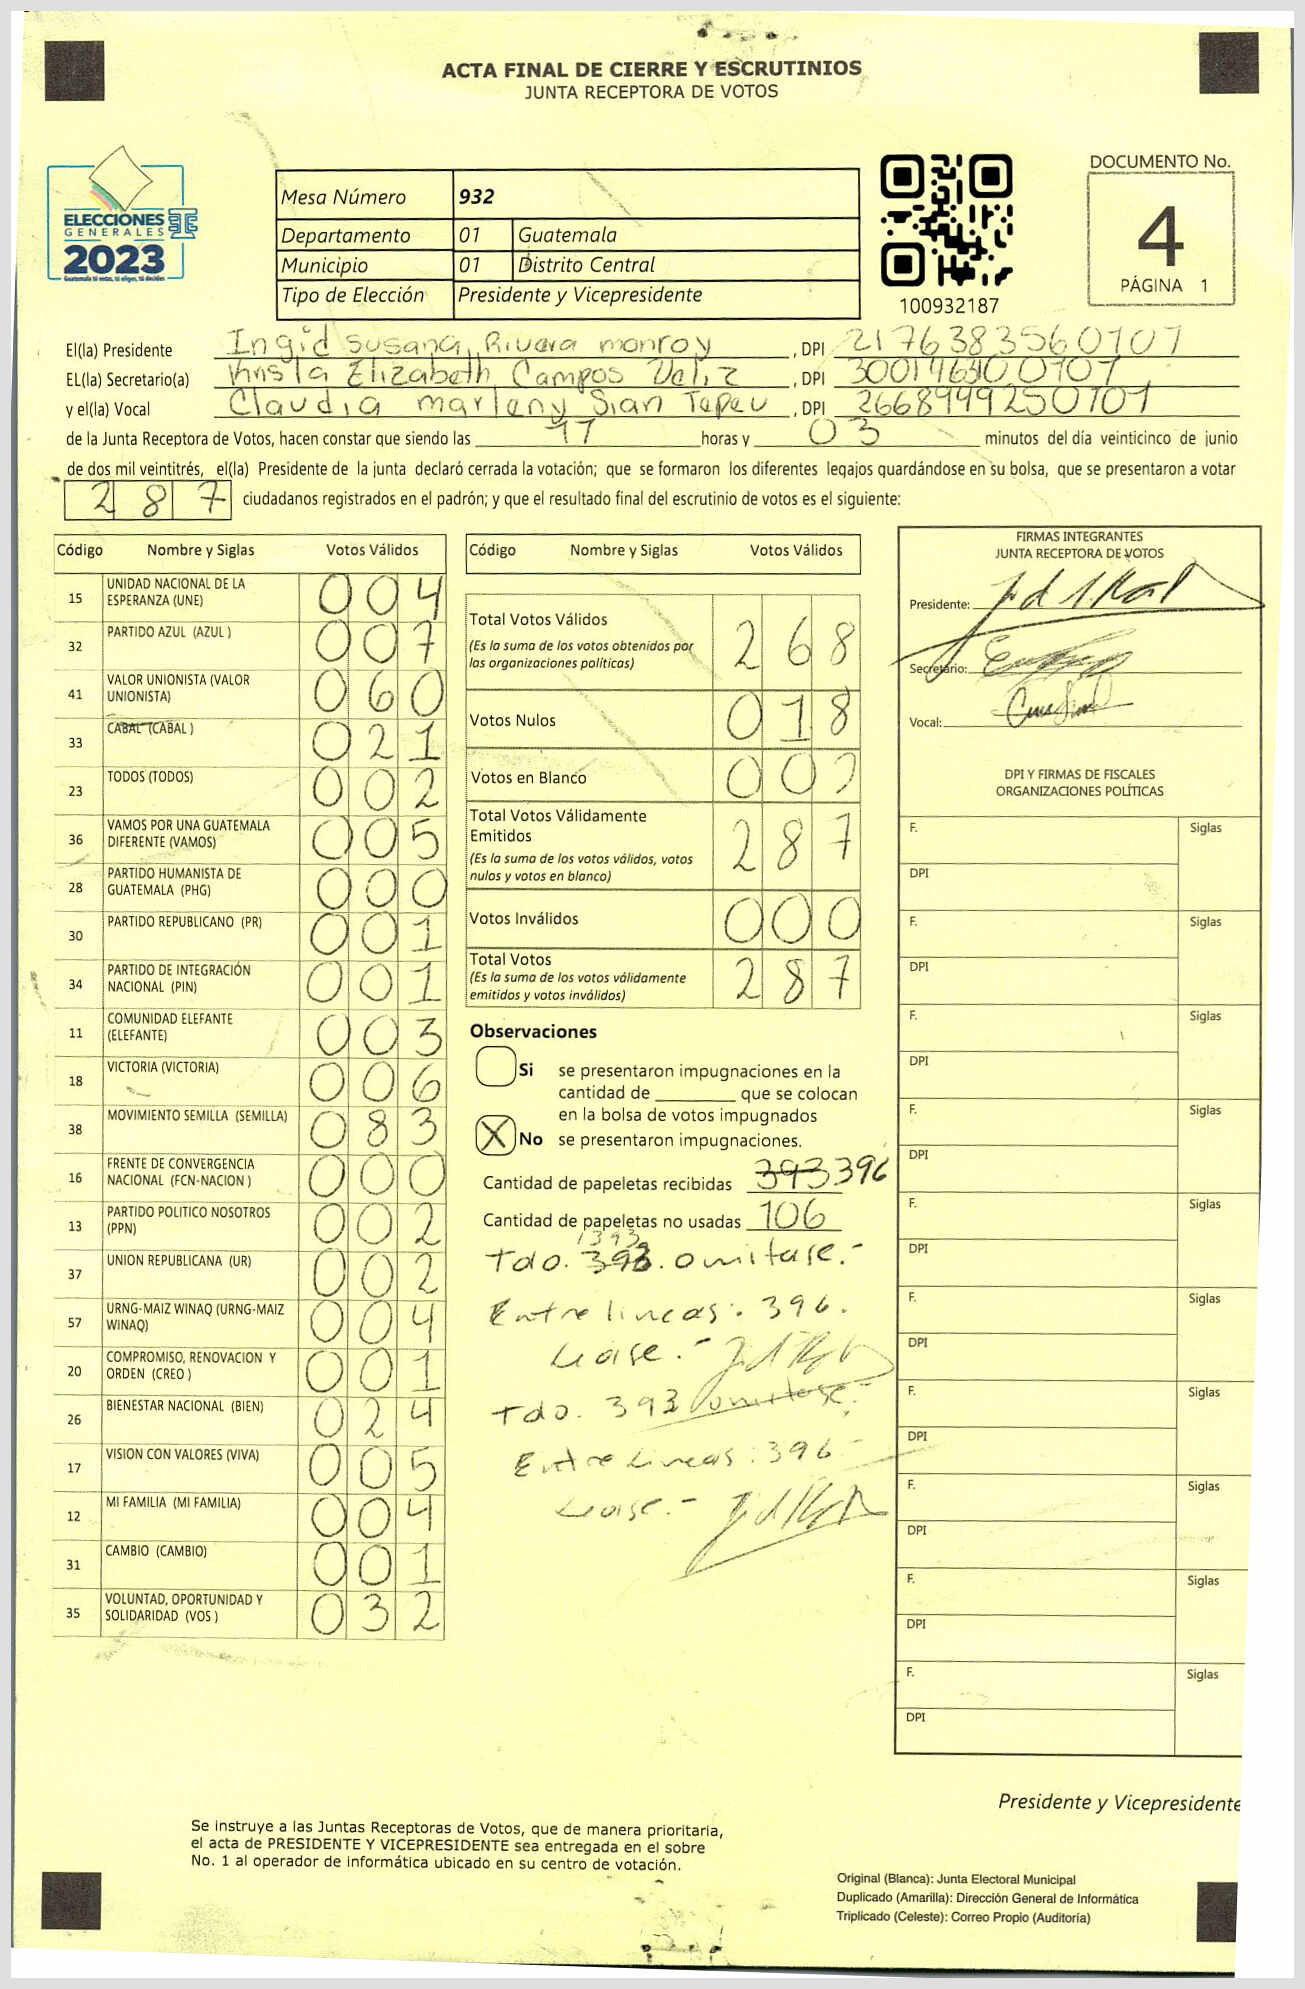 ACTA FINAL DE CIERRE Y ESCRUTINIOS
JUNTA RECEPTORA DE VOTOS
ELECCIONES
GENERALES
2023
Guatemala tú votas, tú eliges, tú decides
Mesa Número 932
Departamento 01 Guatemala
Municipio 01 Distrito Central
Tipo de Elección Presidente y Vicepresidente
100932187
DOCUMENTO No.
4
PÁGINA 1
El(la) Presidente Ingid Susana Rivera monroy, DPI 2176383560101
EL(la) Secretario(a) Krista Elizabeth Campos Veliz, DPI
y el(la) Vocal Claudia marleny Sian Tepeu, DPI 2668999250101
de la Junta Receptora de Votos, hacen constar que siendo las 17 horas y 03 minutos del día veinticinco de junio
de dos mil veintitrés, el(la) Presidente de la junta declaró cerrada la votación; que se formaron los diferentes legajos guardándose en su bolsa, que se presentaron a votar
287 ciudadanos registrados en el padrón; y que el resultado final del escrutinio de votos es el siguiente:
Código Nombre y Siglas Votos Válidos
15 UNIDAD NACIONAL DE LA ESPERANZA (UNE) 004
32 PARTIDO AZUL (AZUL ) 007
41 VALOR UNIONISTA (VALOR UNIONISTA) 060
33 CABAL (CABAL ) 021
23 TODOS (TODOS) 002
36 VAMOS POR UNA GUATEMALA DIFERENTE (VAMOS) 005
28 PARTIDO HUMANISTA DE GUATEMALA (PHG) 000
30 PARTIDO REPUBLICANO (PR) 001
34 PARTIDO DE INTEGRACIÓN NACIONAL (PIN) 001
11 COMUNIDAD ELEFANTE (ELEFANTE) 003
18 VICTORIA (VICTORIA) 006
38 MOVIMIENTO SEMILLA (SEMILLA) 083
16 FRENTE DE CONVERGENCIA NACIONAL (FCN-NACION ) 000
13 PARTIDO POLITICO NOSOTROS (PPN) 002
37 UNION REPUBLICANA (UR) 002
57 URNG-MAIZ WINAQ (URNG-MAIZ WINAQ) 004
20 COMPROMISO, RENOVACION Y ORDEN (CREO ) 001
26 BIENESTAR NACIONAL (BIEN) 024
17 VISION CON VALORES (VIVA) 005
12 MI FAMILIA (MI FAMILIA) 004
31 CAMBIO (CAMBIO) 001
35 VOLUNTAD, OPORTUNIDAD Y SOLIDARIDAD (VOS ) 032
Código Nombre y Siglas Votos Válidos
Total Votos Válidos 268
(Es la suma de los votos obtenidos por
las organizaciones políticas)
Votos Nulos 018
Votos en Blanco 001
Total Votos Válidamente
Emitidos 287
(Es la suma de los votos válidos, votos
nulos y votos en blanco)
Votos Inválidos 000
Total Votos 287
(Es la suma de los votos válidamente
emitidos y votos inválidos)
Observaciones
Si se presentaron impugnaciones en la
cantidad de ________ que se colocan
en la bolsa de votos impugnados
X No se presentaron impugnaciones.
Cantidad de papeletas recibidas 393 396
Cantidad de papeletas no usadas 106
1393
Tdo. 393. omitase.-
Entre lineas: 396.
Lease.-
Tdo. 393 omitase.-
Entre Lineas: 396-
Lease.-
FIRMAS INTEGRANTES
JUNTA RECEPTORA DE VOTOS
Presidente:
Secretario:
Vocal:
DPI Y FIRMAS DE FISCALES
ORGANIZACIONES POLÍTICAS
F. Siglas
DPI
F. Siglas
DPI
F. Siglas
DPI
F. Siglas
DPI
F. Siglas
DPI
F. Siglas
DPI
F. Siglas
DPI
F. Siglas
DPI
F. Siglas
DPI
F. Siglas
DPI
Presidente y Vicepresidente
Se instruye a las Juntas Receptoras de Votos, que de manera prioritaria,
el acta de PRESIDENTE Y VICEPRESIDENTE sea entregada en el sobre
No. 1 al operador de informática ubicado en su centro de votación.
Original (Blanca): Junta Electoral Municipal
Duplicado (Amarilla): Dirección General de Informática
Triplicado (Celeste): Correo Propio (Auditoría)